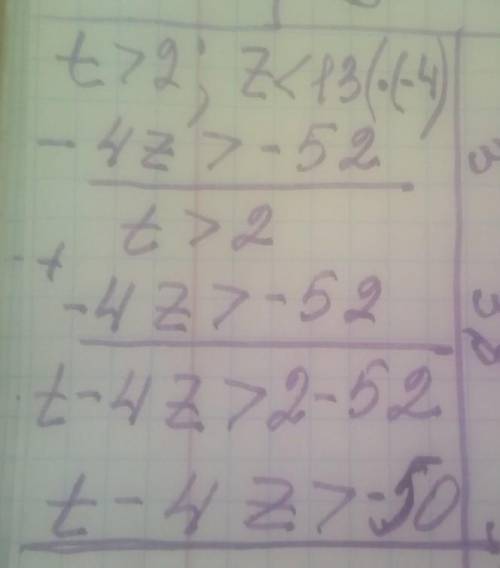 t > 2; z < 13 (·(-4)
- 4z > - 52
t > 2
+
- 4z > - 52
t - 4z > 2 - 52
t - 4z > -50